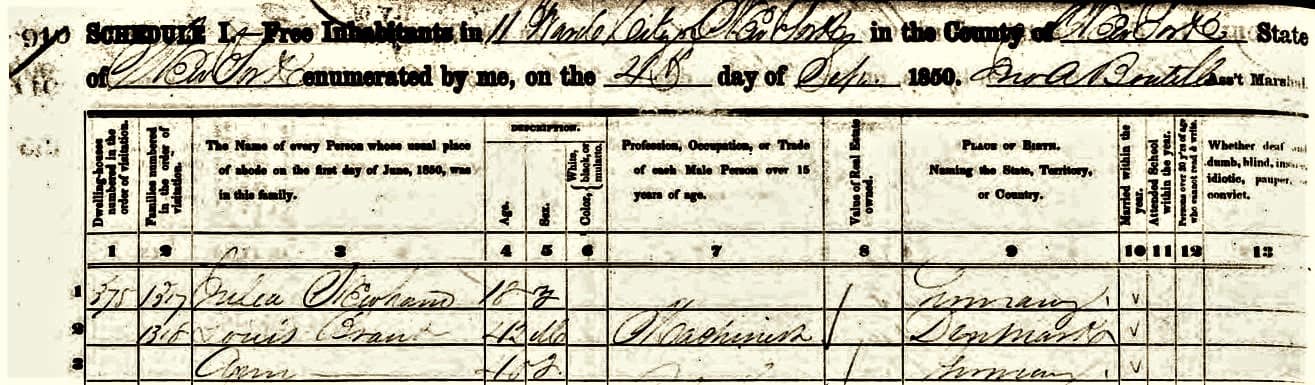 910 SCHEDULE I.—Free Inhabitants in 11 Ward City of New York in the County of New York State
of New York enumerated by me, on the day of Sep. 1850. Jno A Ass't Marshal
Dwelling-houses numbered in the order of visitation.
Families numbered in the order of visitation.
The Name of every Person whose usual place
of abode on the first day of June, 1850, was
in this family.
DESCRIPTION.
Age.
Sex.
Color, { White, black, or mulatto.
Profession, Occupation, or Trade
of each Male Person over 15
years of age.
Value of Real Estate owned.
PLACE OF BIRTH.
Naming the State, Territory,
or Country.
Married within the year.
Attended School within the year.
Persons over 20 y'rs of age who cannot read & write.
Whether deaf and
dumb, blind, insane,
idiotic, pauper, or
convict.
1 2 3 4 5 6 7 8 9 10 11 12 13
1 375 1317 Julia Newham 18 F Germany
2 1318 Louis 42 M Machinist Denmark
3 40 F Germany